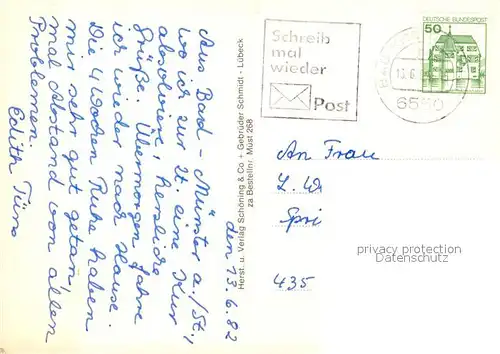 den 13.6.82
Aus Bad-Münster a./St.,
wo ich zur Zt. eine Kur
absolviere, herzliche
Grüße. Übermorgen fahre
ich wieder nach Hause.
Die 4 Wochen Ruhe haben
mir sehr gut getan,
mal Abstand von allen
Problemen.
Edith
Herst. u. Verlag Schöning & Co + Gebrüder Schmidt - Lübeck
za Bestellnr. Müst 268
Schreib
mal
wieder
Post
DEUTSCHE BUNDESPOST
50
An Frau
privacy protection
Datenschutz
435